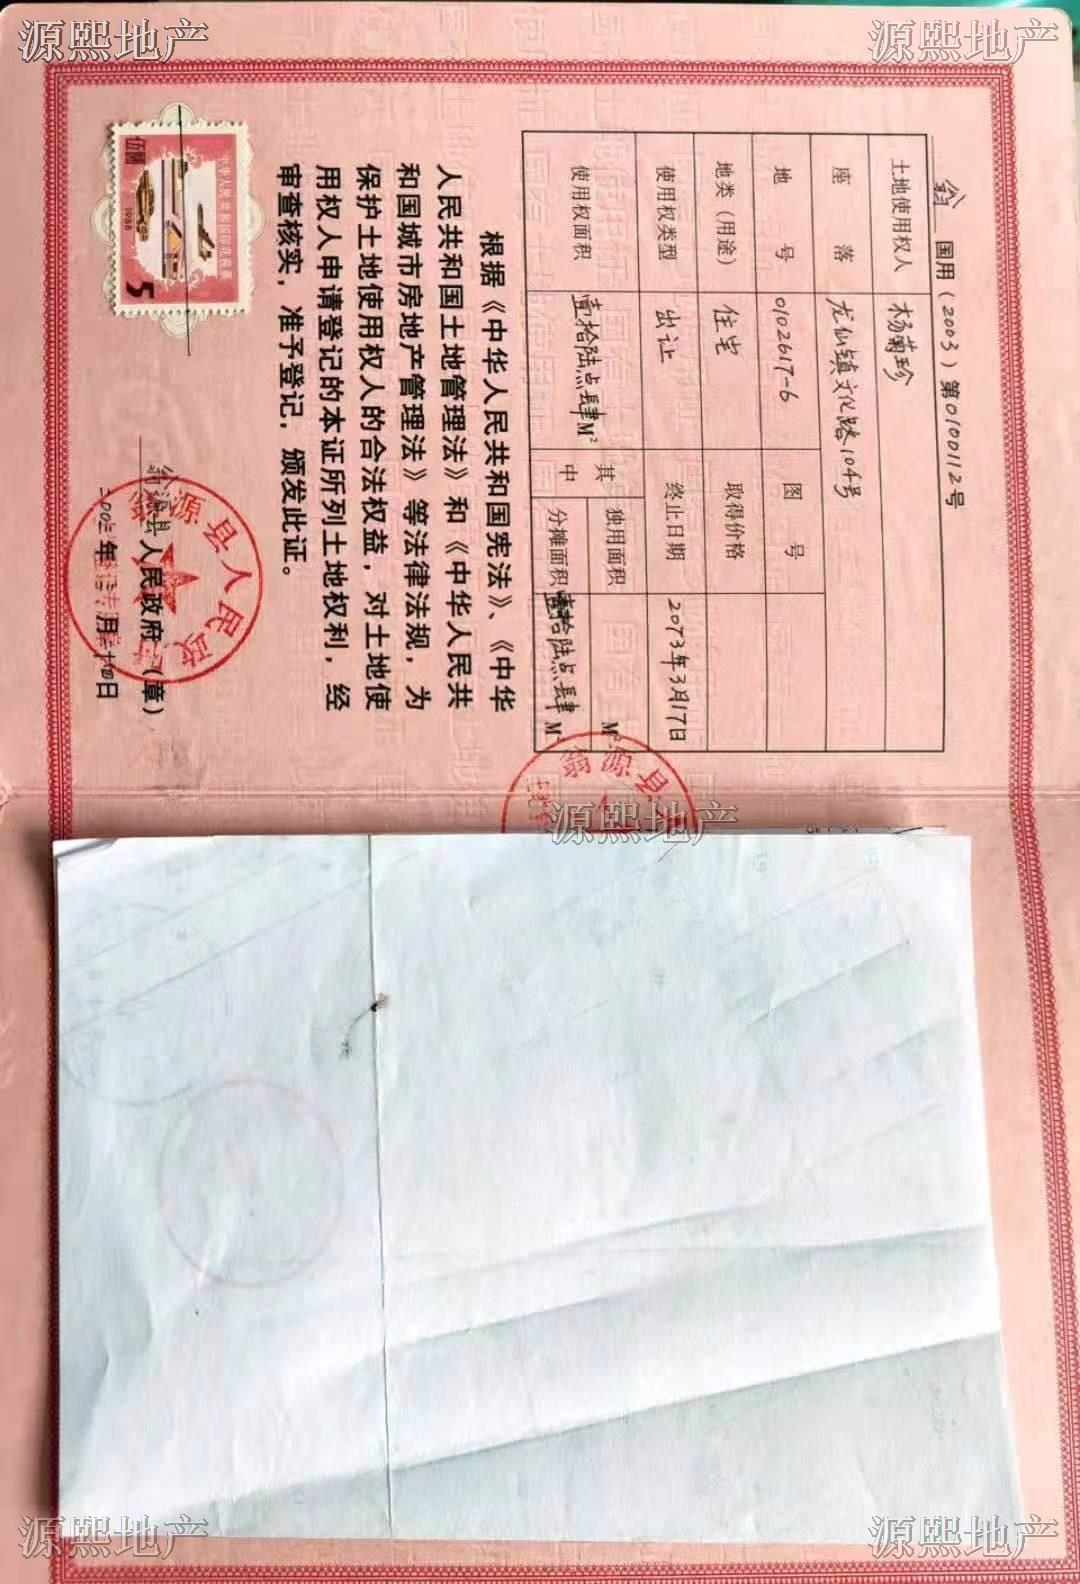 源熙地产
源熙地产
翁 国用(2003)第0100112号
土地使用权人 杨菊珍
座落 龙仙镇文化路104号
地号 0102617-6 图号
地类(用途) 住宅 取得价格
使用权类型 出让 终止日期 2073年3月17日
使用权面积 壹拾陆点肆M² 其中 独用面积 M²
分摊面积 壹拾陆点肆M²
根据《中华人民共和国宪法》、《中华
人民共和国土地管理法》和《中华人民共
和国城市房地产管理法》等法律法规,为
保护土地使用权人的合法权益,对土地使
用权人申请登记的本证所列土地权利,经
审查核实,准予登记,颁发此证。
翁源县人民政府(章)
翁源县人民政府
年 月 日
中华人民共和国印花税票
伍圆
1988
5
翁源县
源熙地产
源熙地产
源熙地产